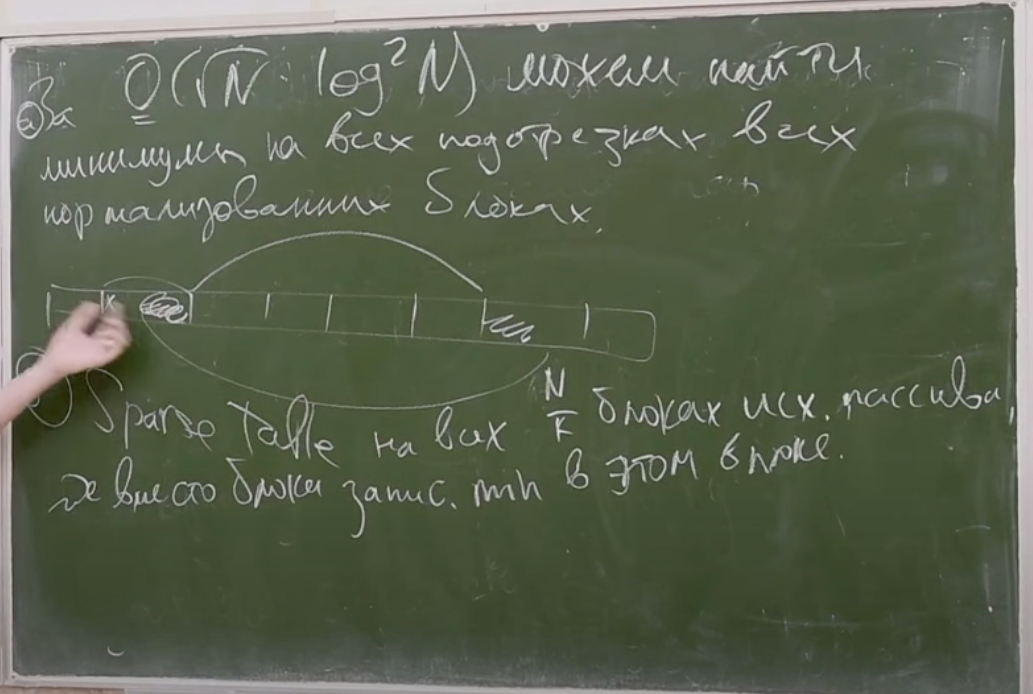 а) За O(√N · log² N) можем найти
минимумы на всех подотрезках всех
нормализованных блоках.
x
Sparse Table на всех N/k блоках исх. массива,
где вместо блока запис. min в этом блоке.